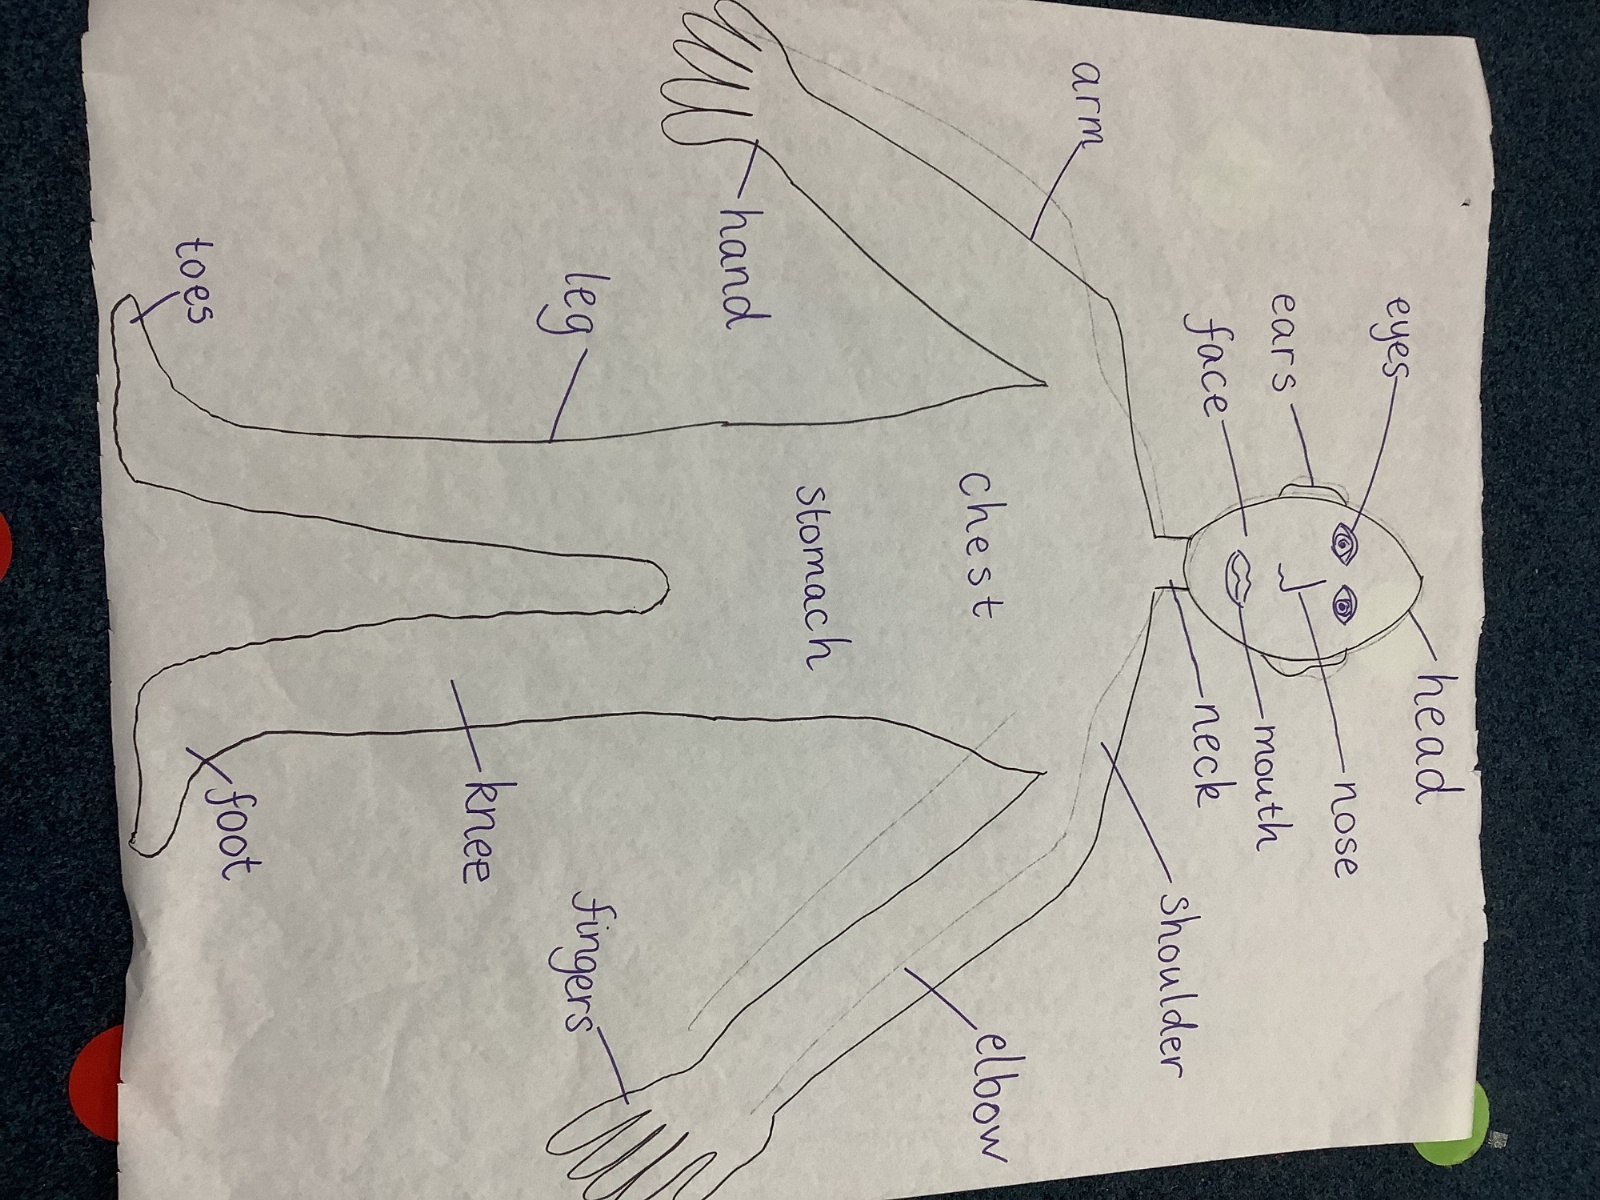 head
eyes
nose
ears
mouth
face
neck
shoulder
arm
chest
elbow
stomach
hand
fingers
leg
knee
foot
toes